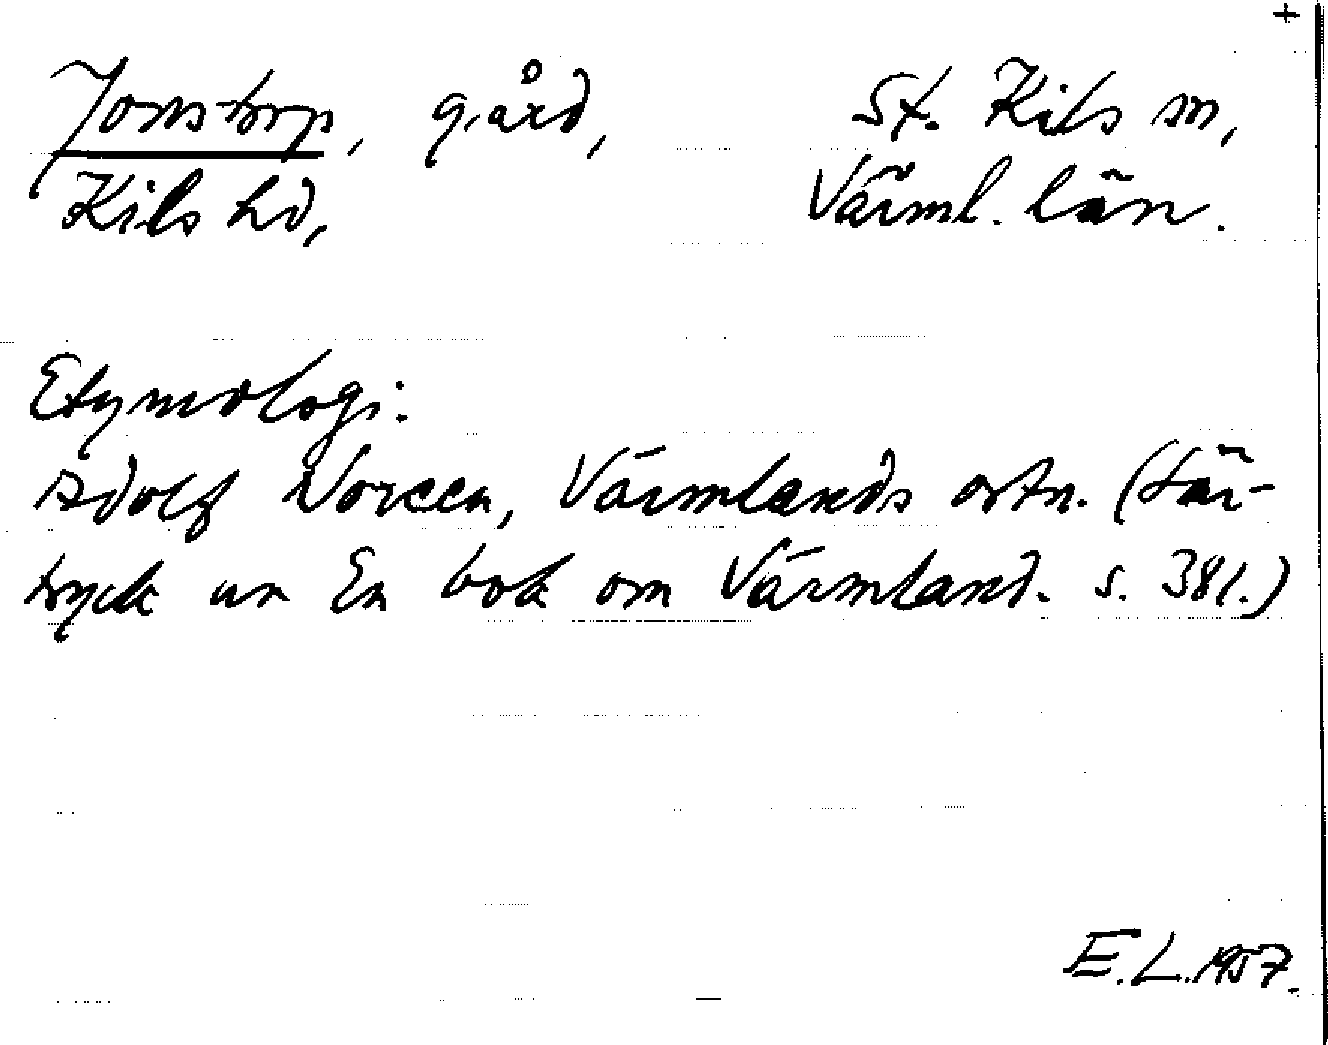 +
Jonstorp, gård, St. Kils sn,
Kils hd, Värml. län.
Etymologi:
Adolf Noreen, Värmlands ortn. (Sär-
tryck ur En bok om Värmland. s. 381.)
E.L. 1957.